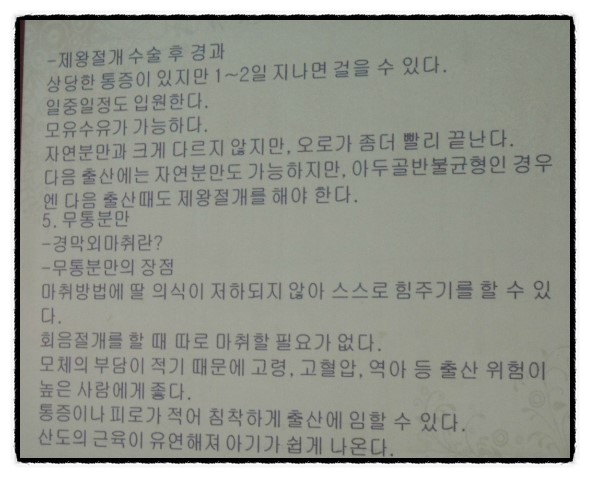 -제왕절개 수술 후 경과
상당한 통증이 있지만 1~2일 지나면 걸을 수 있다.
일중일정도 입원한다.
모유수유가 가능하다.
자연분만과 크게 다르지 않지만, 오로가 좀더 빨리 끝난다.
다음 출산에는 자연분만도 가능하지만, 아두골반불균형인 경우
엔 다음 출산때도 제왕절개를 해야 한다.
5. 무통분만
-경막외마취란?
-무통분만의 장점
마취방법에 딸 의식이 저하되지 않아 스스로 힘주기를 할 수 있
다.
회음절개를 할 때 따로 마취할 필요가 없다.
모체의 부담이 적기 때문에 고령, 고혈압, 역아 등 출산 위험이
높은 사람에게 좋다.
통증이나 피로가 적어 침착하게 출산에 임할 수 있다.
산도의 근육이 유연해져 아기가 쉽게 나온다.